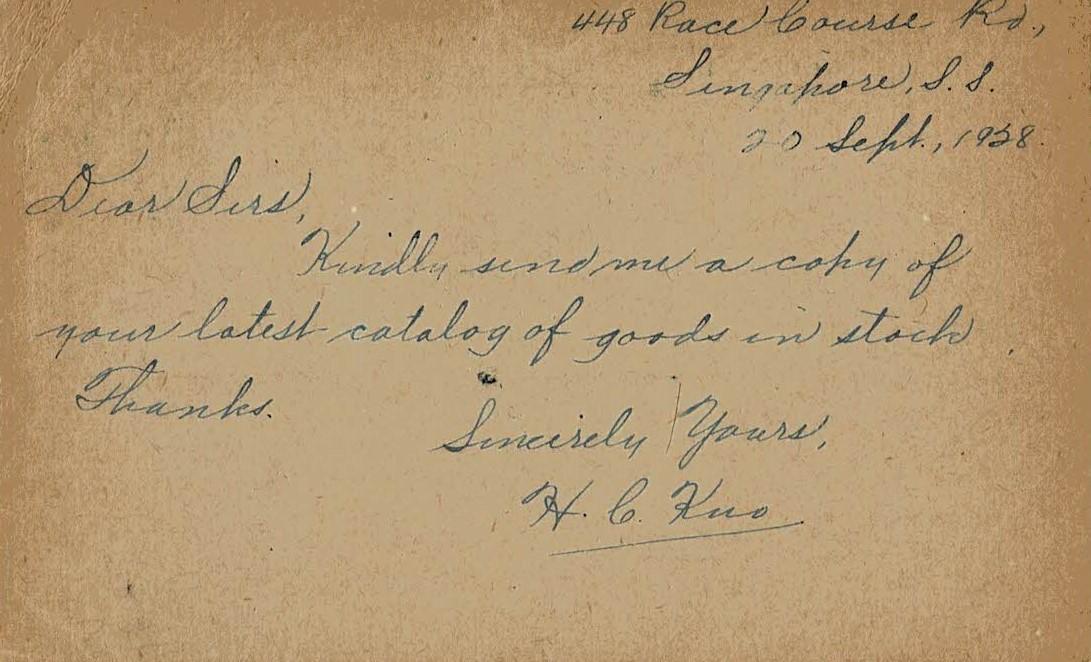 448 Race Course Rd.,
Singapore, S. S.
20 Sept., 1938.
Dear Sirs,
Kindly send me a copy of
your latest catalog of goods in stock.
Thanks.
Sincerely Yours,
H. C. Kuo